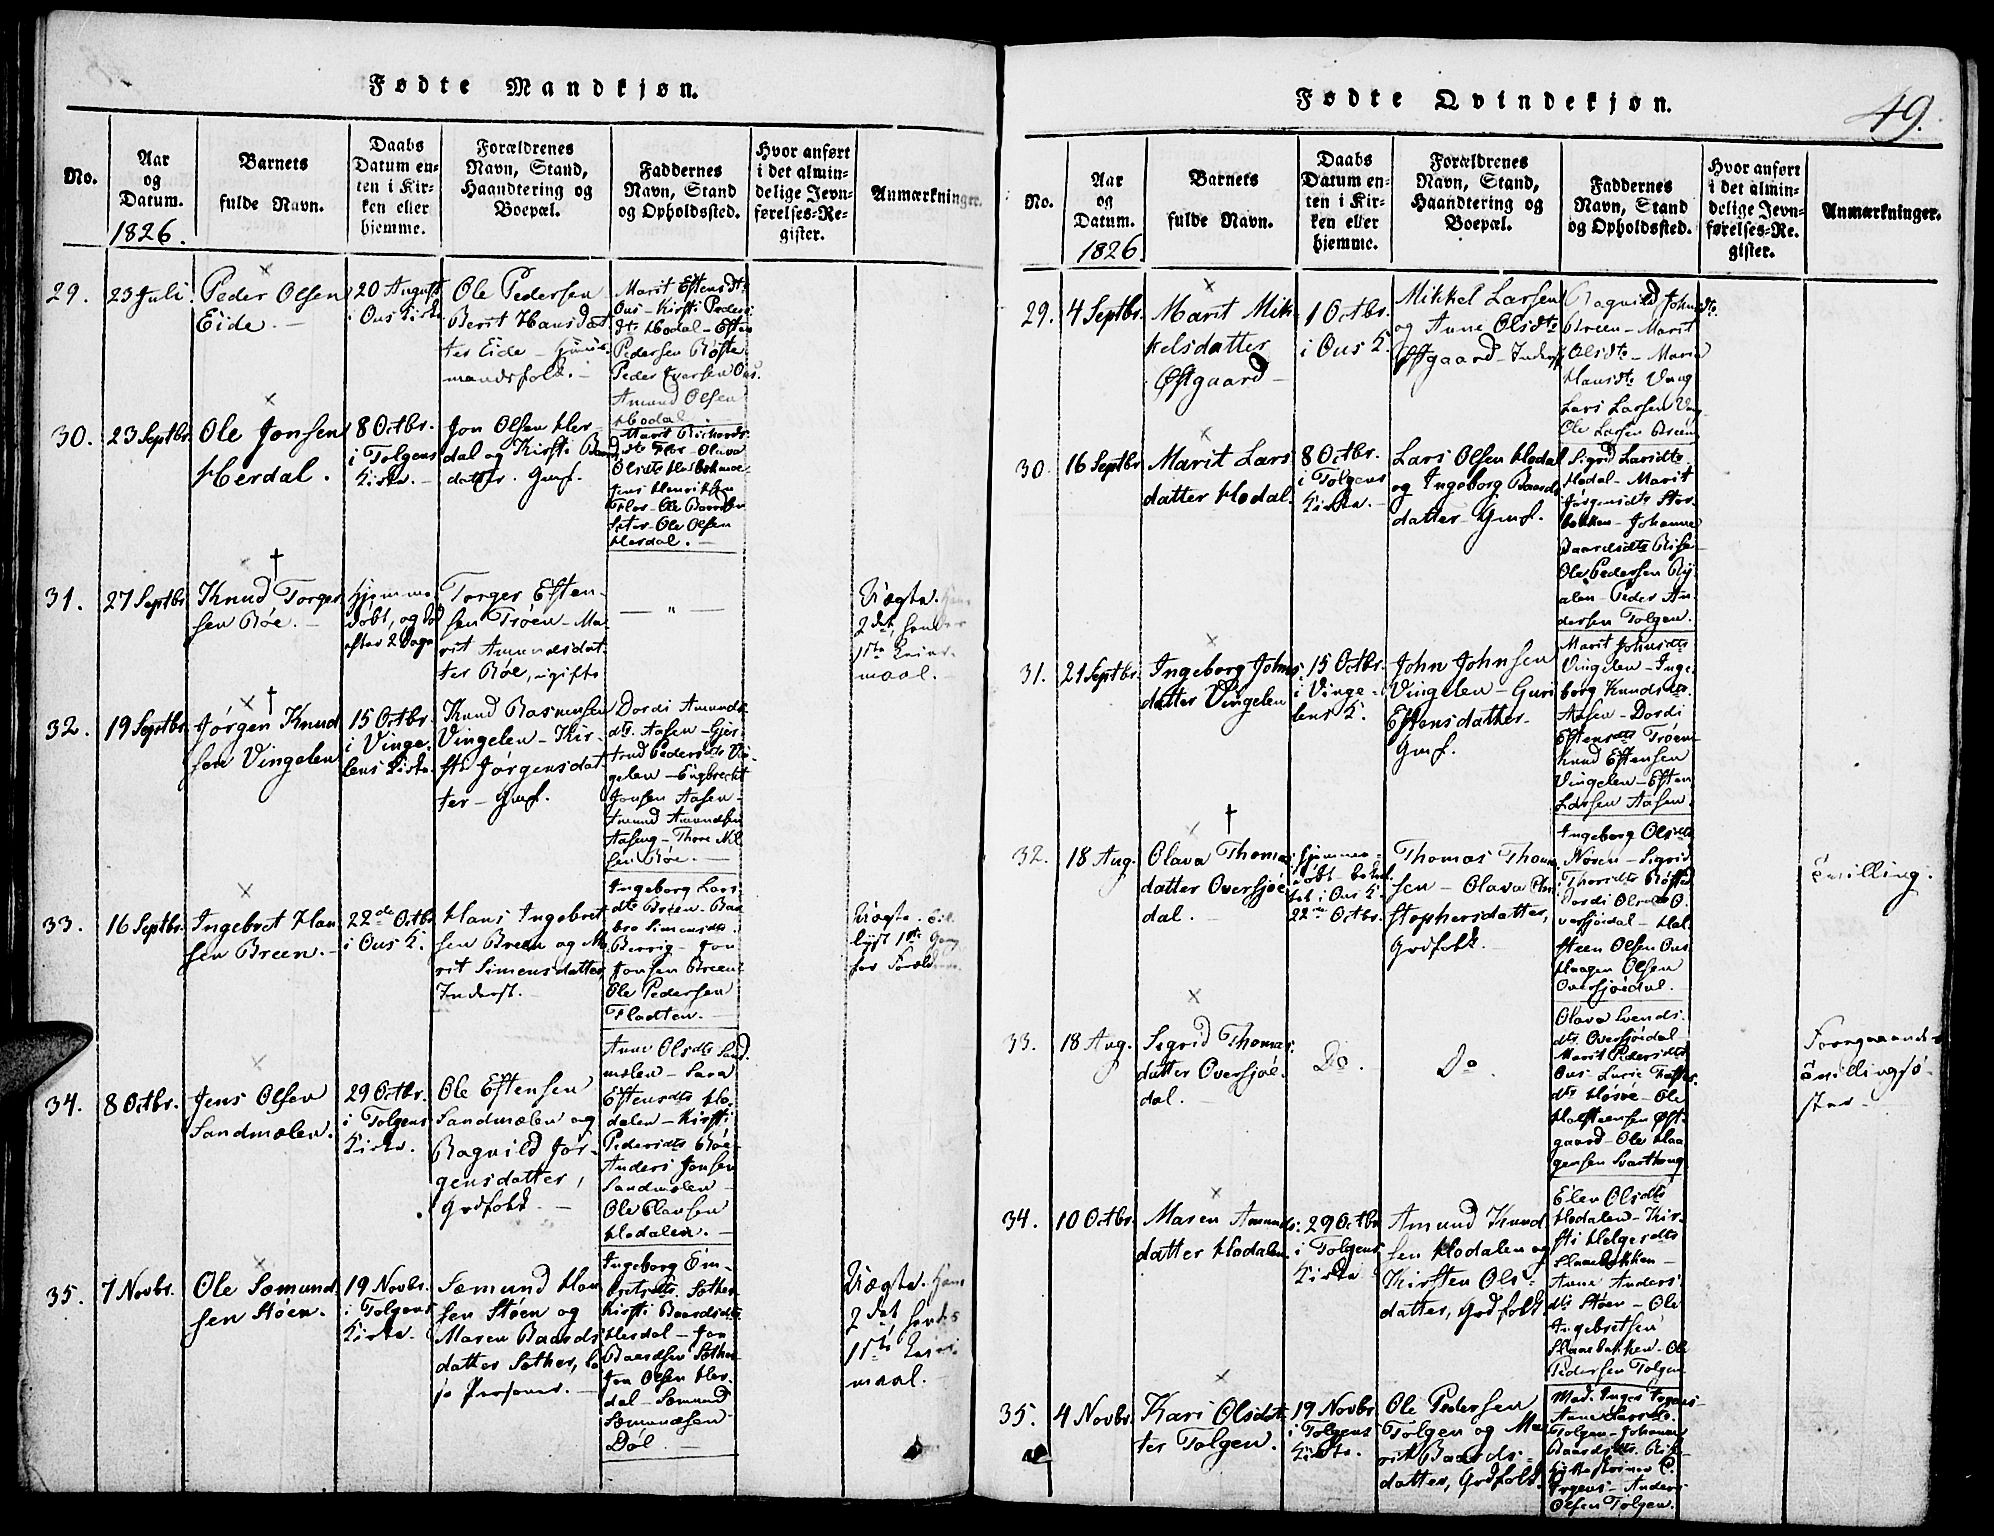 Fødte Mandkjøn.
No.
Aar
og
Datum.
1826.
Barnets
fulde Navn.
Daabs
Datum en-
ten i Kir-
ken eller
hjemme.
Forældrenes
Navn, Stand,
Haandtering og
Boepæl.
Faddernes
Navn, Stand
og Opholdssted.
Hvor anført
i det almin-
delige Jevn-
førelses-Re-
gister.
Anmærkninger.
29.
23 Juli
Peder Olsen
Eide.
20 August
i Ous Kirke
Ole Pedersen
Berit Hansdat
ter Eide
mandsfolk.
Marit Estensdtr
Ous - Kirsti Peders
dtr Hodal - Esten
Pedersen Røste
Peder Iversen Ous.
Amund Olsen
Hodal.
30.
23 Septbr
Ole Jonsen
Herdal.
8 Octbr.
i Tolgens
Kirke.
Jon Olsen Her-
dal og Kirsti Baard
datter. Gmf.
Marit Richards
dtr Flor - Olava
Olsdtr
Jens Henriksen
Flor - Ole Baardsen
Sæter - Ole Olsen
Herdal.
31.
27 Septbr
Knud Torger
sen Røe.
Hjemme
døbt, og død
efter 2 Dage
Torger Esten-
sen Trøen - Ma-
rit Amundsdat-
ter Røe, ugifte
— " —
Uægte. Hans
2det, hendes
1ste Leier-
maal.
32.
19 Septbr.
Jørgen Knud
sen Vingelen
15 Octbr.
i Vinge-
lens Kirke.
Knud Rasmusen
Vingelen - Kir-
sti Jørgensdat
ter - Gmf.
Dordi Amunds
dtr. Aasen - Gjer-
trud Pedersdtr Vin
gelen - Engbrecht
Jonsen Aasen -
Amund Amundsen
Aaseng - Thore Nil
sen Røe.
33.
16 Septbr.
Ingebret Han
sen Breen.
22de Octbr
i Ous K.
Hans Ingebret
sen Breen og Ma
rit Simensdatter
Inderst.
Ingeborg Lars-
dtr Breen - Bar
bro Simensdtr
Berrig - Jon
Jonsen Breen
Ole Pedersen
Fladten.
Uægte.
lyst 1ste Gang
for Forældrene
34.
8 Octbr.
Jens Olsen
Sandmælen.
29 Octbr.
i Tolgens
Kirke.
Ole Estensen
Sandmælen og
Ragnild Jør-
gensdatter,
Grdfolk.
Anne Olsdtr Sand
mælen - Sara
Estensdtr Ho-
dalen - Kirsti
Pedersdtr Røe
Anders Jonsen
Sandmælen
Ole Clausen
Hodalen.
35.
7 Novbr.
Ole Sæmund
sen Støen.
19 Novbr.
i Tolgens
Kirke.
Sæmund Han
sen Støen og
Maren Baards
datter Sæther, lø
se Personer.
Ingeborg Em-
bretsdtr. Sæther
Kirsti Baardsdtr
Herdal - Jon
Baardsen Sæther
Jon Olsen Her-
dal - Sæmund
Sæmundsen
Døl.
Uægte. Hans
2det, hendes
1ste Leier-
maal.
Fødte Qvindekjøn.
49.
No.
Aar
og
Datum.
1826
Barnets
fulde Navn.
Daabs
Datum en-
ten i Kir-
ken eller
hjemme.
Forældrenes
Navn, Stand,
Haandtering og
Boepæl.
Faddernes
Navn, Stand
og Opholdssted.
Hvor anført
i det almin-
delige Jevn-
førelses-Re-
gister.
Anmærkninger.
29.
4 Septbr.
Marit Mik
kelsdatter
Østgaard
1 Octbr.
i Ous K.
Mikkel Larsen
og Anne Olsdtr
Østgaard - Inderst
Ragnild Johnsdtr.
Breen - Marit
Olsdtr - Maria
Hansdtr Vang
Lars Larsen Vang
Ole Larsen Breen
30.
16 Septbr
Marit Lars
datter Hodal.
8 Octbr.
i Tolgens
Kirke.
Lars Olsen Hodal
og Ingeborg Baards
datter - Gmf.
Sigrid Larsdtr
Hodal - Marit
Jørgensdtr Stor
bækken - Johanne
Baardsdtr Riise
Ole Pedersen Ry-
alen - Peder An-
dersen Tolgen.
31.
21 Septbr.
Ingeborg Johns
datter Vingelen
15 Octbr.
i Vinge-
lens K.
John Johnsen
Vingelen - Guri
Estensdatter.
Gmf.
Marit Johnsdtr
Vingelen - Inge-
borg Knudsdtr.
Aasen - Dordi
Estensdtr Trøen
Knud Estensen
Vingelen - Esten
Larsen Aasen.
32.
18 Aug.
Olava Thomas
datter Oversjøe
dal.
Hjemme-
døbt
i Ous K.
22de Octbr.
Thomas Thom
sen - Olava Chri
stophersdatter,
Grdfolk.
Ingeborg Olsdtr
Nøren - Sigrid
Thorsdtr Røste
Dordi Olsdtr O-
versjødal - Hal
steen Olsen Ous
Haagen Olsen
Oversjøedal.
Tvilling.
33.
18 Aug.
Sigrid Thomas
datter Oversjøe-
dal.
Do.
Do.
Olava Svends
dtr. Oversjødal
Marit Pedersdtr
Ous
Ole
Halsteensen Øst-
gaard - Ole Haa
gensen Svarthaug
Foregaaende
Tvillingsø-
ster.
34.
10 Octbr.
Maren Amunds
datter Hodalen.
29 Octbr
i Tolgens
Kirke
Amund Knud
sen Hodalen og
Kirsten Ols-
datter, Grdfolk
Elen Olsdtr
Hodalen - Kir-
sti Helgesdtr
Slaabækken -
Anne Anders
dtr Støen - Ole
Ingebretsen
Slaabækken - Ole
Pedersen Tolgen
35.
4 Novbr.
Kari Olsdat-
ter Tolgen.
19 Novbr.
i Tolgens
Kirke.
Ole Pedersen
Tolgen og Ma
rit Baards-
datter, Grdfolk
Tolgen - Johanne
Baardsdtr.
Anders
Olsen Tolgen.